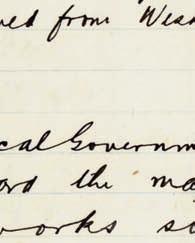 ved from Wea
cal Governm
ord the ma
works so